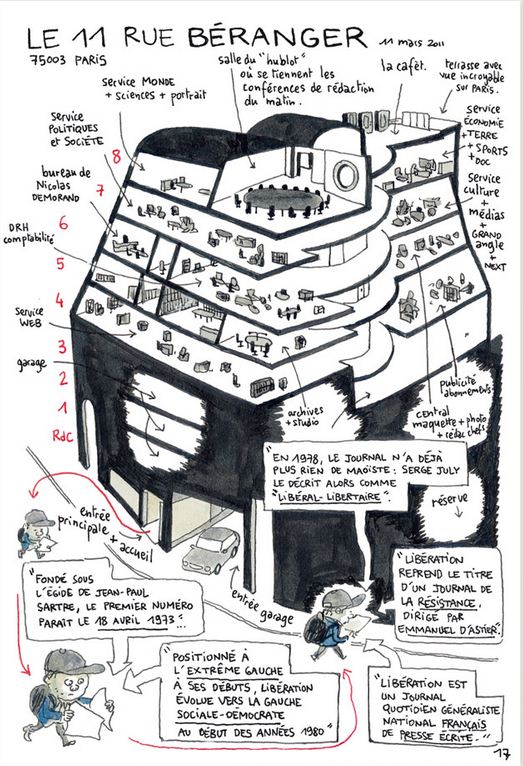 LE 11 RUE BÉRANGER
11 mars 2011
75003 PARIS
service MONDE
+ sciences + portrait
salle du "hublot"
où se tiennent les
conférences de rédaction
du matin.
la cafèt.
terrasse avec
vue incroyable
sur PARIS.
service
POLITIQUES
et SOCIÉTÉ
service
ÉCONOMIE
+ TERRE
+ SPORTS
+ DOC
bureau de
Nicolas
DEMORAND
service
culture
+
médias
+
GRAND
angle
+
NEXT
DRH
comptabilité
service
WEB
garage
8
7
6
5
4
3
2
1
RdC
archives
+ studio
publicité
abonnements
central
maquette + photo
+ rédac chefs
réserve
entrée
principale
+ accueil
entrée garage
"EN 1978, LE JOURNAL N'A DÉJÀ
PLUS RIEN DE MAOÏSTE : SERGE JULY
LE DÉCRIT ALORS COMME
"LIBÉRAL-LIBERTAIRE".
"LIBÉRATION
REPREND LE TITRE
D'UN JOURNAL DE
LA RÉSISTANCE,
DIRIGÉ PAR
EMMANUEL D'ASTIER".
"FONDÉ SOUS
L'ÉGIDE DE JEAN-PAUL
SARTRE, LE PREMIER NUMÉRO
PARAÎT LE 18 AVRIL 1973"...
"POSITIONNÉ À
L'EXTRÊME GAUCHE
À SES DÉBUTS, LIBÉRATION
ÉVOLUE VERS LA GAUCHE
SOCIALE-DÉMOCRATE
AU DÉBUT DES ANNÉES 1980"
"LIBÉRATION EST
UN JOURNAL
QUOTIDIEN GÉNÉRALISTE
NATIONAL FRANÇAIS
DE PRESSE ÉCRITE."
17